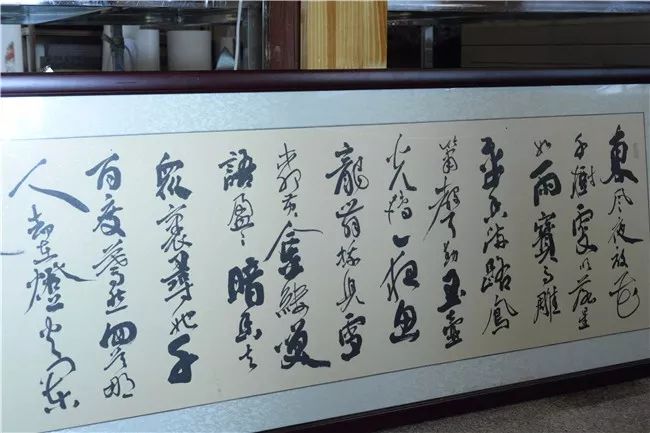 東风夜放花
千樹更吹落星
如雨寶马雕
車香满路鳳
箫聲动玉壶
光转一夜魚
龍舞蛾兒雪
柳黄金缕笑
語盈々暗香去
眾裏尋他千
百度蓦然回首那
人却在燈火阑珊